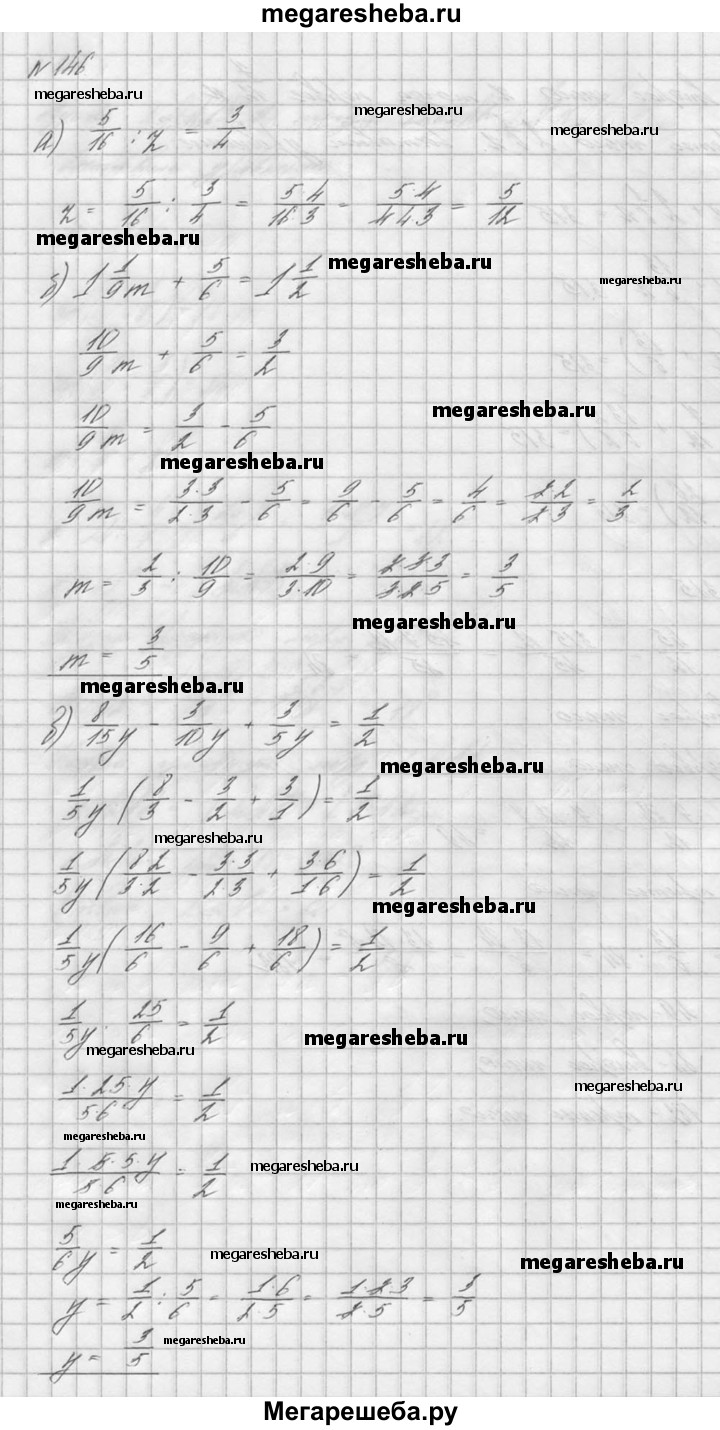 megaresheba.ru
N 146
megaresheba.ru
megaresheba.ru
megaresheba.ru
а) 5/16 : z = 3/4
z = 5/16 : 3/4 = 5·4/16·3 = 5·4/4·4·3 = 5/12
megaresheba.ru
megaresheba.ru
megaresheba.ru
б) 1 1/9 m + 5/6 = 1 1/2
10/9 m + 5/6 = 3/2
megaresheba.ru
10/9 m = 3/2 - 5/6
megaresheba.ru
10/9 m = 3·3/2·3 - 5/6 = 9/6 - 5/6 = 4/6 = 2·2/2·3 = 2/3
m = 2/3 : 10/9 = 2·9/3·10 = 2·3·3/3·2·5 = 3/5
megaresheba.ru
m = 3/5
megaresheba.ru
в) 8/15 y - 3/10 y + 3/5 y = 1/2
megaresheba.ru
1/5 y (8/3 - 3/2 + 3/1) = 1/2
megaresheba.ru
1/5 y (8·2/3·2 - 3·3/2·3 + 3·6/1·6) = 1/2
megaresheba.ru
1/5 y (16/6 - 9/6 + 18/6) = 1/2
1/5 y · 25/6 = 1/2
megaresheba.ru
megaresheba.ru
1·25·y/5·6 = 1/2
megaresheba.ru
megaresheba.ru
1·5·5·y/5·6 = 1/2
megaresheba.ru
megaresheba.ru
5/6 y = 1/2
megaresheba.ru
megaresheba.ru
y = 1/2 : 5/6 = 1·6/2·5 = 1·2·3/2·5 = 3/5
megaresheba.ru
y = 3/5
megaresheba.ru
Мегарешеба.ру